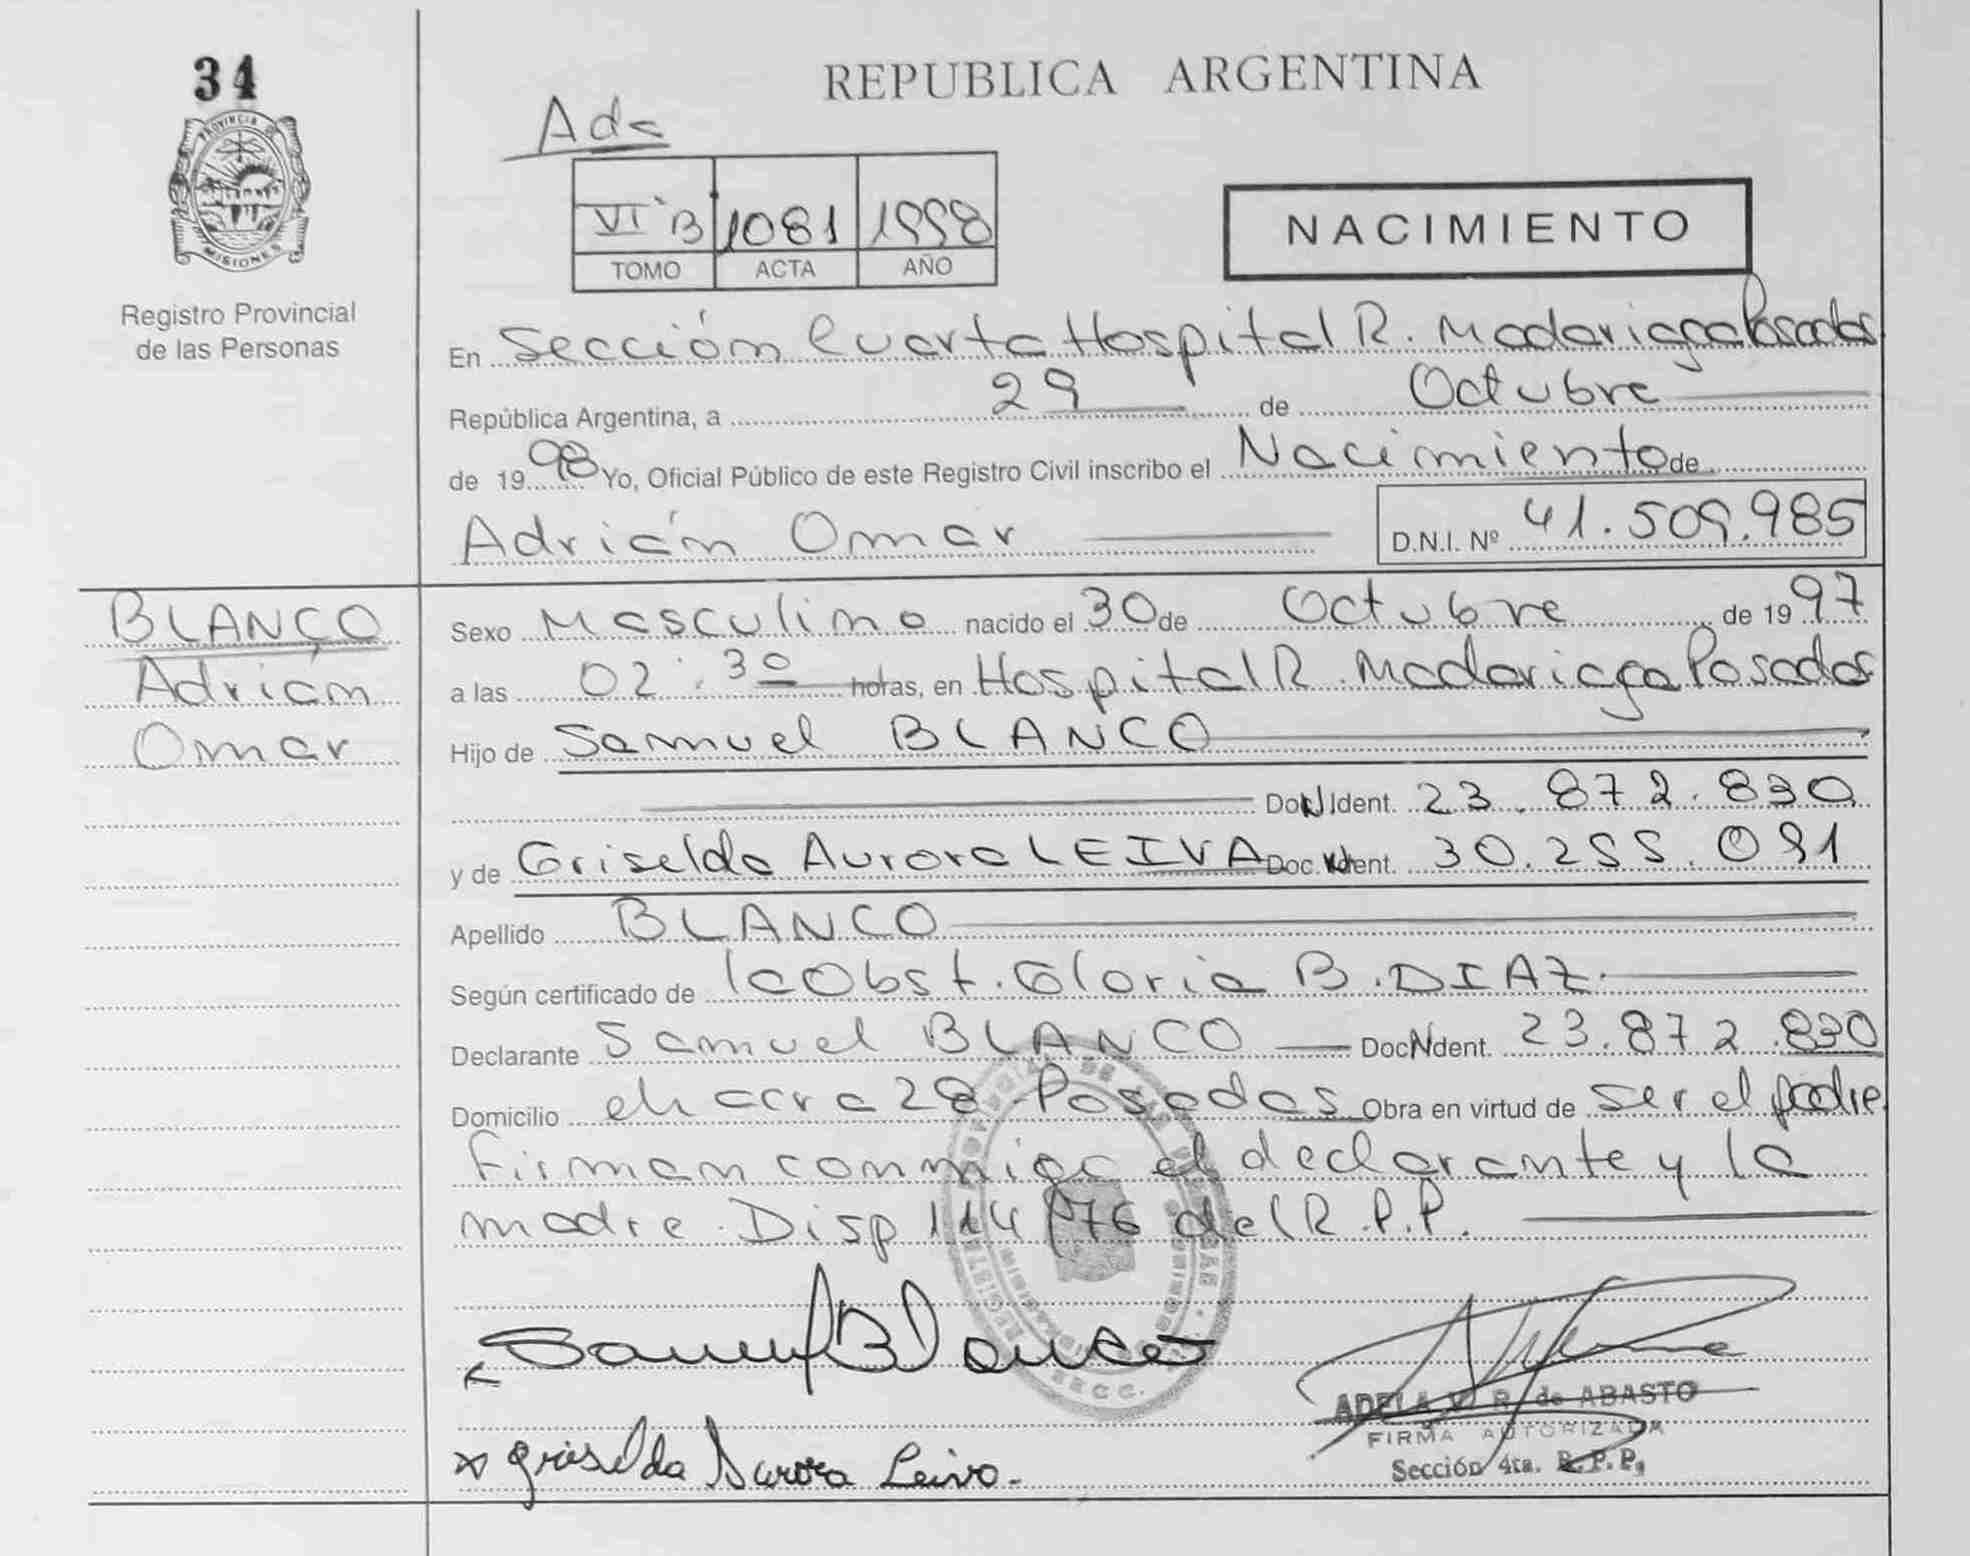 34
REPUBLICA ARGENTINA
PROVINCIA DE
MISIONES
Registro Provincial
de las Personas
Ada
VI B 1081 1998
TOMO ACTA AÑO
NACIMIENTO
En Sección Cuarta Hospital R. Madariaga Posadas
República Argentina, a 29 de Octubre
de 1998 Yo, Oficial Público de este Registro Civil inscribo el Nacimiento de
Adrián Omar D.N.I. Nº 41.509.985
BLANCO
Adrián
Omar
Sexo Masculino nacido el 30 de Octubre de 1997
a las 02:30 horas, en Hospital R. Madariaga Posadas
Hijo de Samuel BLANCO
Doc N Ident. 23.872.830
y de Griselda Aurora LEIVA Doc. N Ident. 30.255.091
Apellido BLANCO
Según certificado de la Obst. Gloria B. DIAZ.
Declarante Samuel BLANCO Doc N Ident. 23.872.830
Domicilio chacra 28 Posadas Obra en virtud de ser el padre
Firman conmigo el declarante y la
madre. Disp 114/76 del R.P.P.
Samuel Blanco
ADELA V. R. de ABASTO
FIRMA AUTORIZADA
Sección 4ta. R.P.P.
x Griselda Aurora Leiva.-